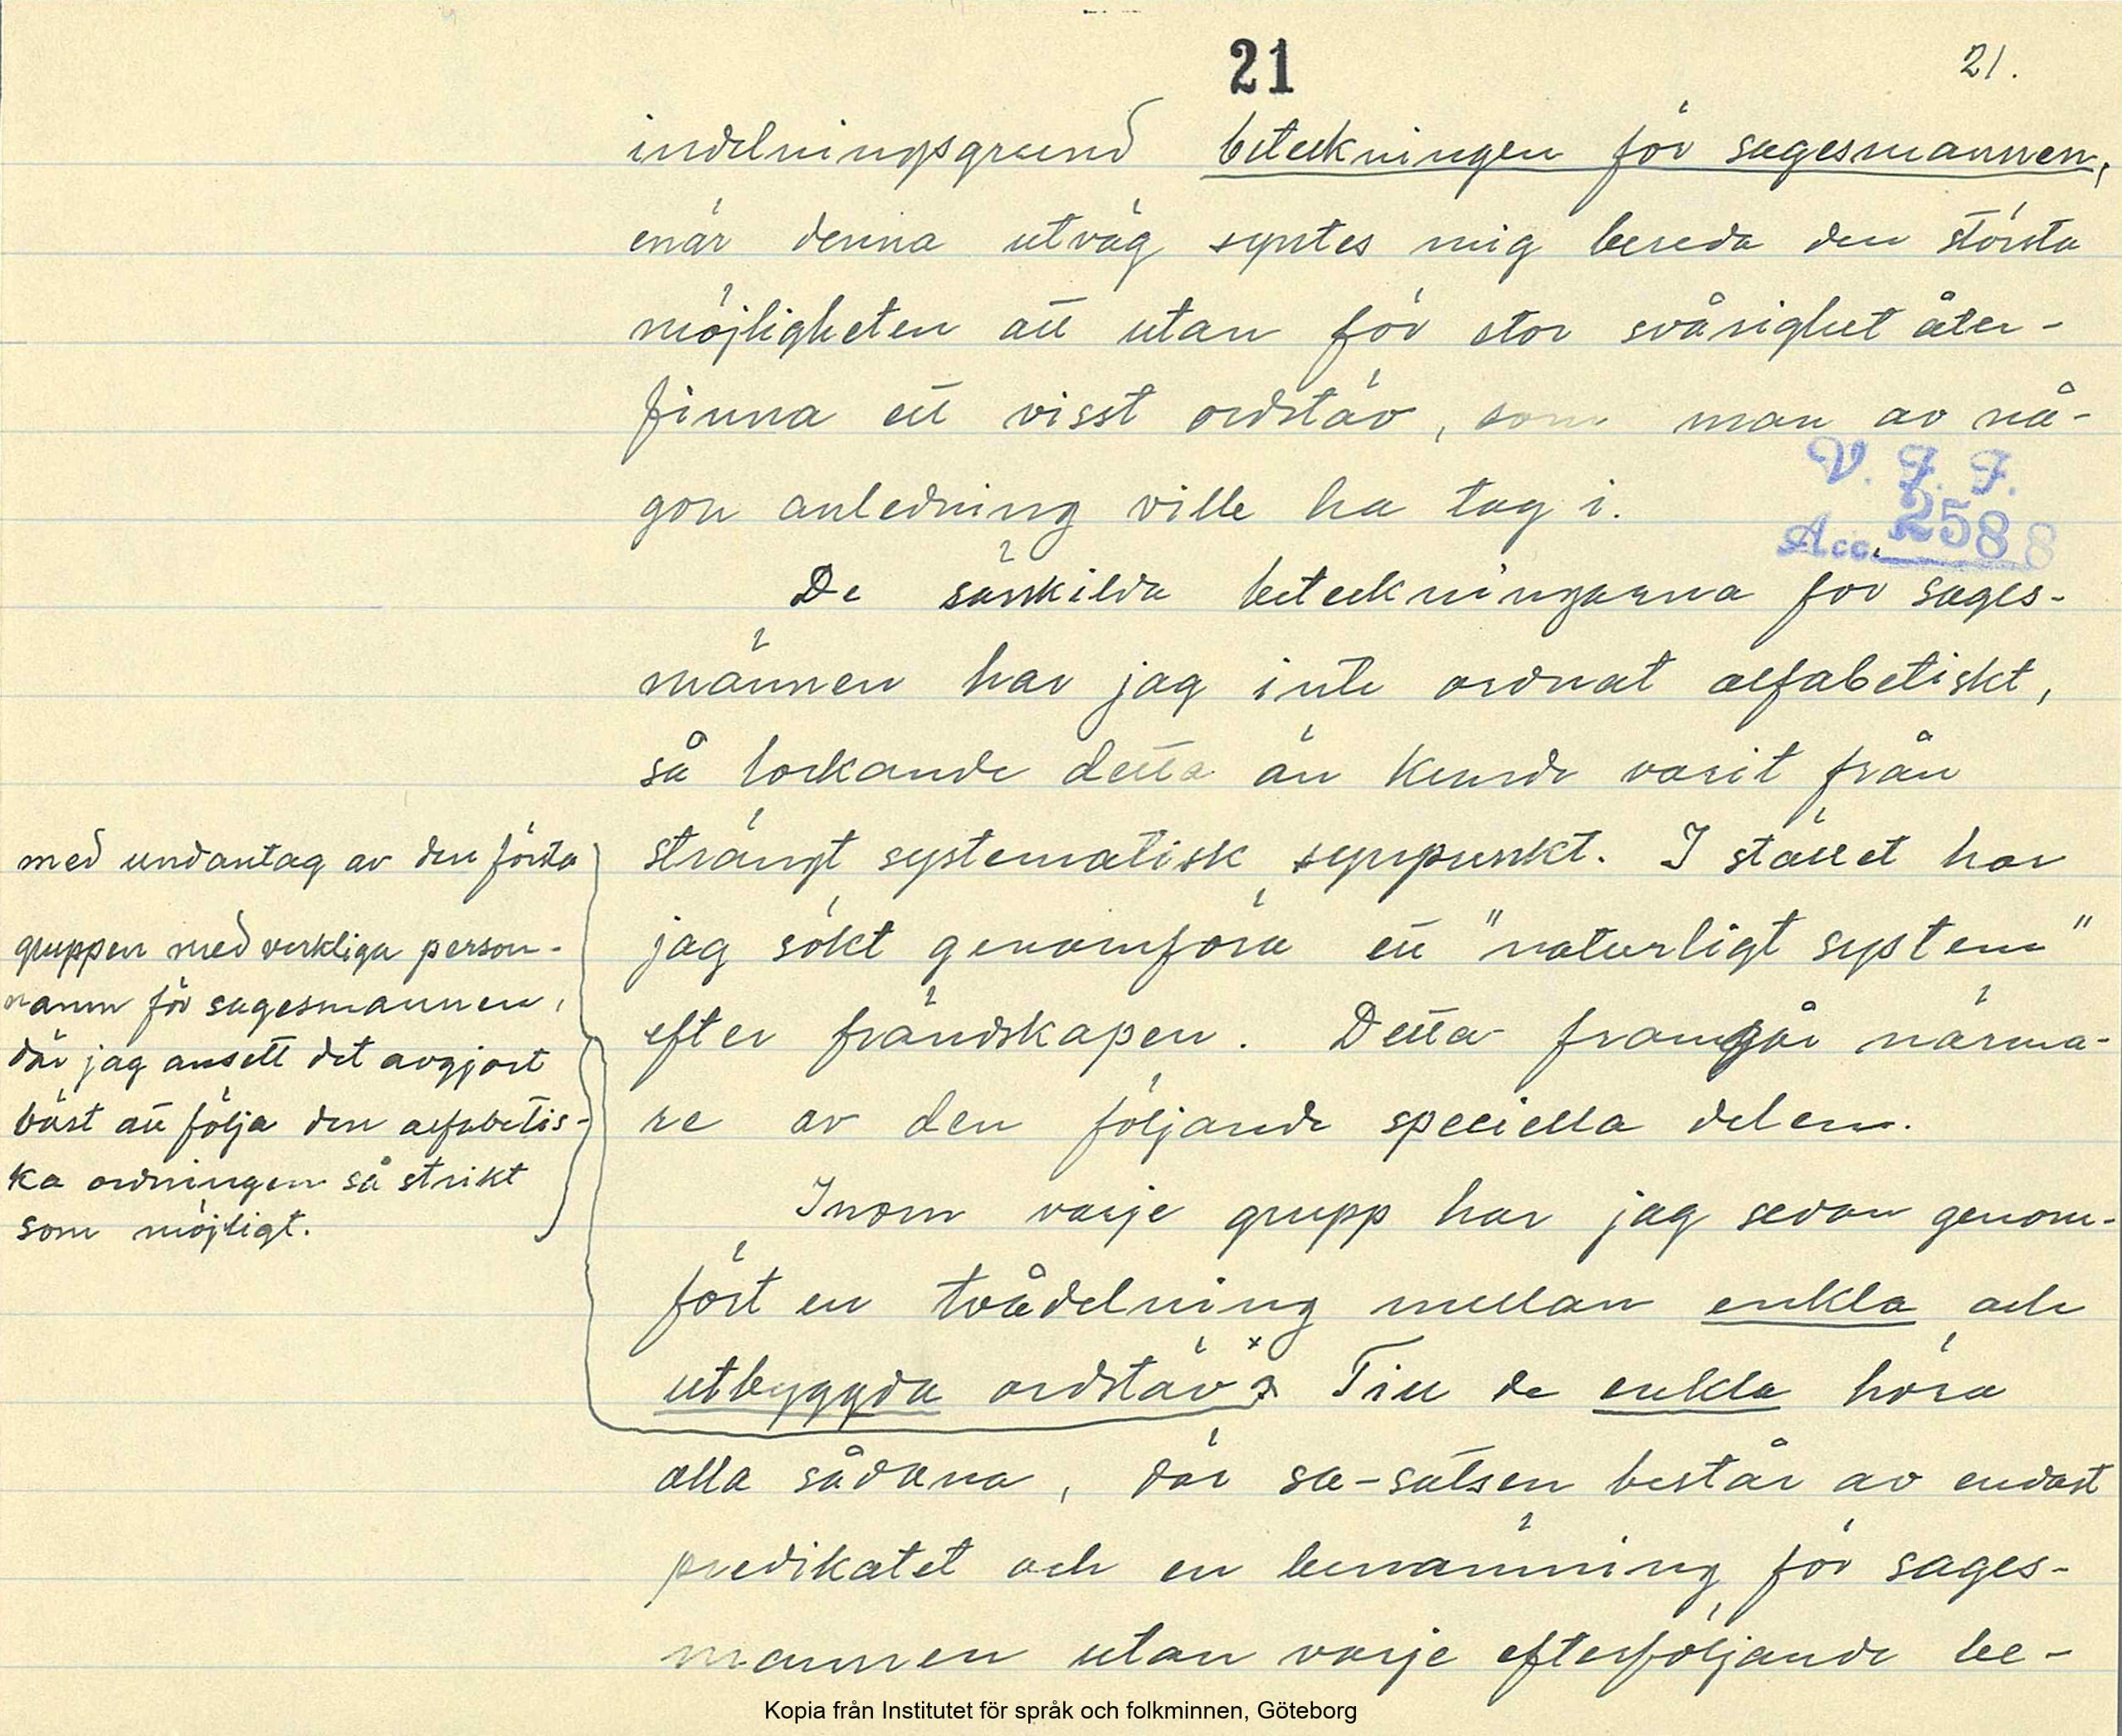 21
21.
indelningsgrund beteckningen för sagesmannen,
enär denna utväg syntes mig bereda den största
möjligheten att utan för stor svårighet åter-
finna ett visst ordstäv, som man av nå-
gon anledning ville ha tag i.
V. F. F.
Acc. 2588
De särskilda beteckningarna för sages-
männen har jag inte ordnat alfabetiskt,
så lockande detta än kunde varit från
strängt systematisk synpunkt. I stället har
jag sökt genomföra ett "naturligt system"
efter frändskapen. Detta framgår närma-
re av den följande speciella delen.
Inom varje grupp har jag sedan genom-
fört en tvådelning mellan enkla och
utbyggda ordstäv x. Till de enkla höra
alla sådana, där sa-satsen består av endast
predikatet och en benämning för sages-
mannen utan varje efterföljande be-
med undantag av den första
gruppen med verkliga person-
namn för sagesmannen,
där jag ansett det avgjort
bäst att följa den alfabetis-
ka ordningen så strikt
som möjligt.
Kopia från Institutet för språk och folkminnen, Göteborg